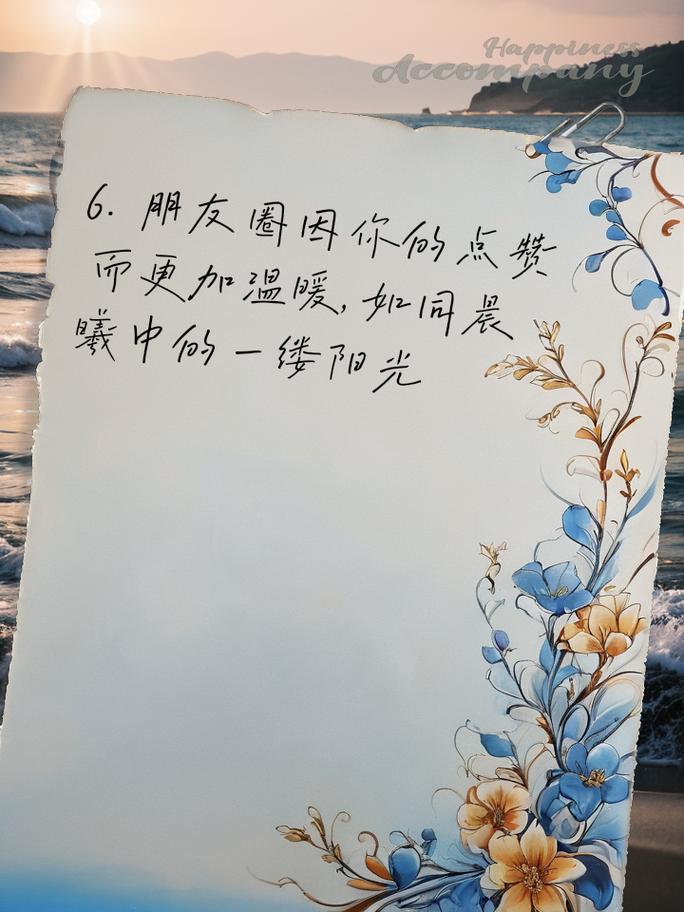 Happiness
Accompany
6. 朋友圈因你的点赞
而更加温暖,如同晨
曦中的一缕阳光